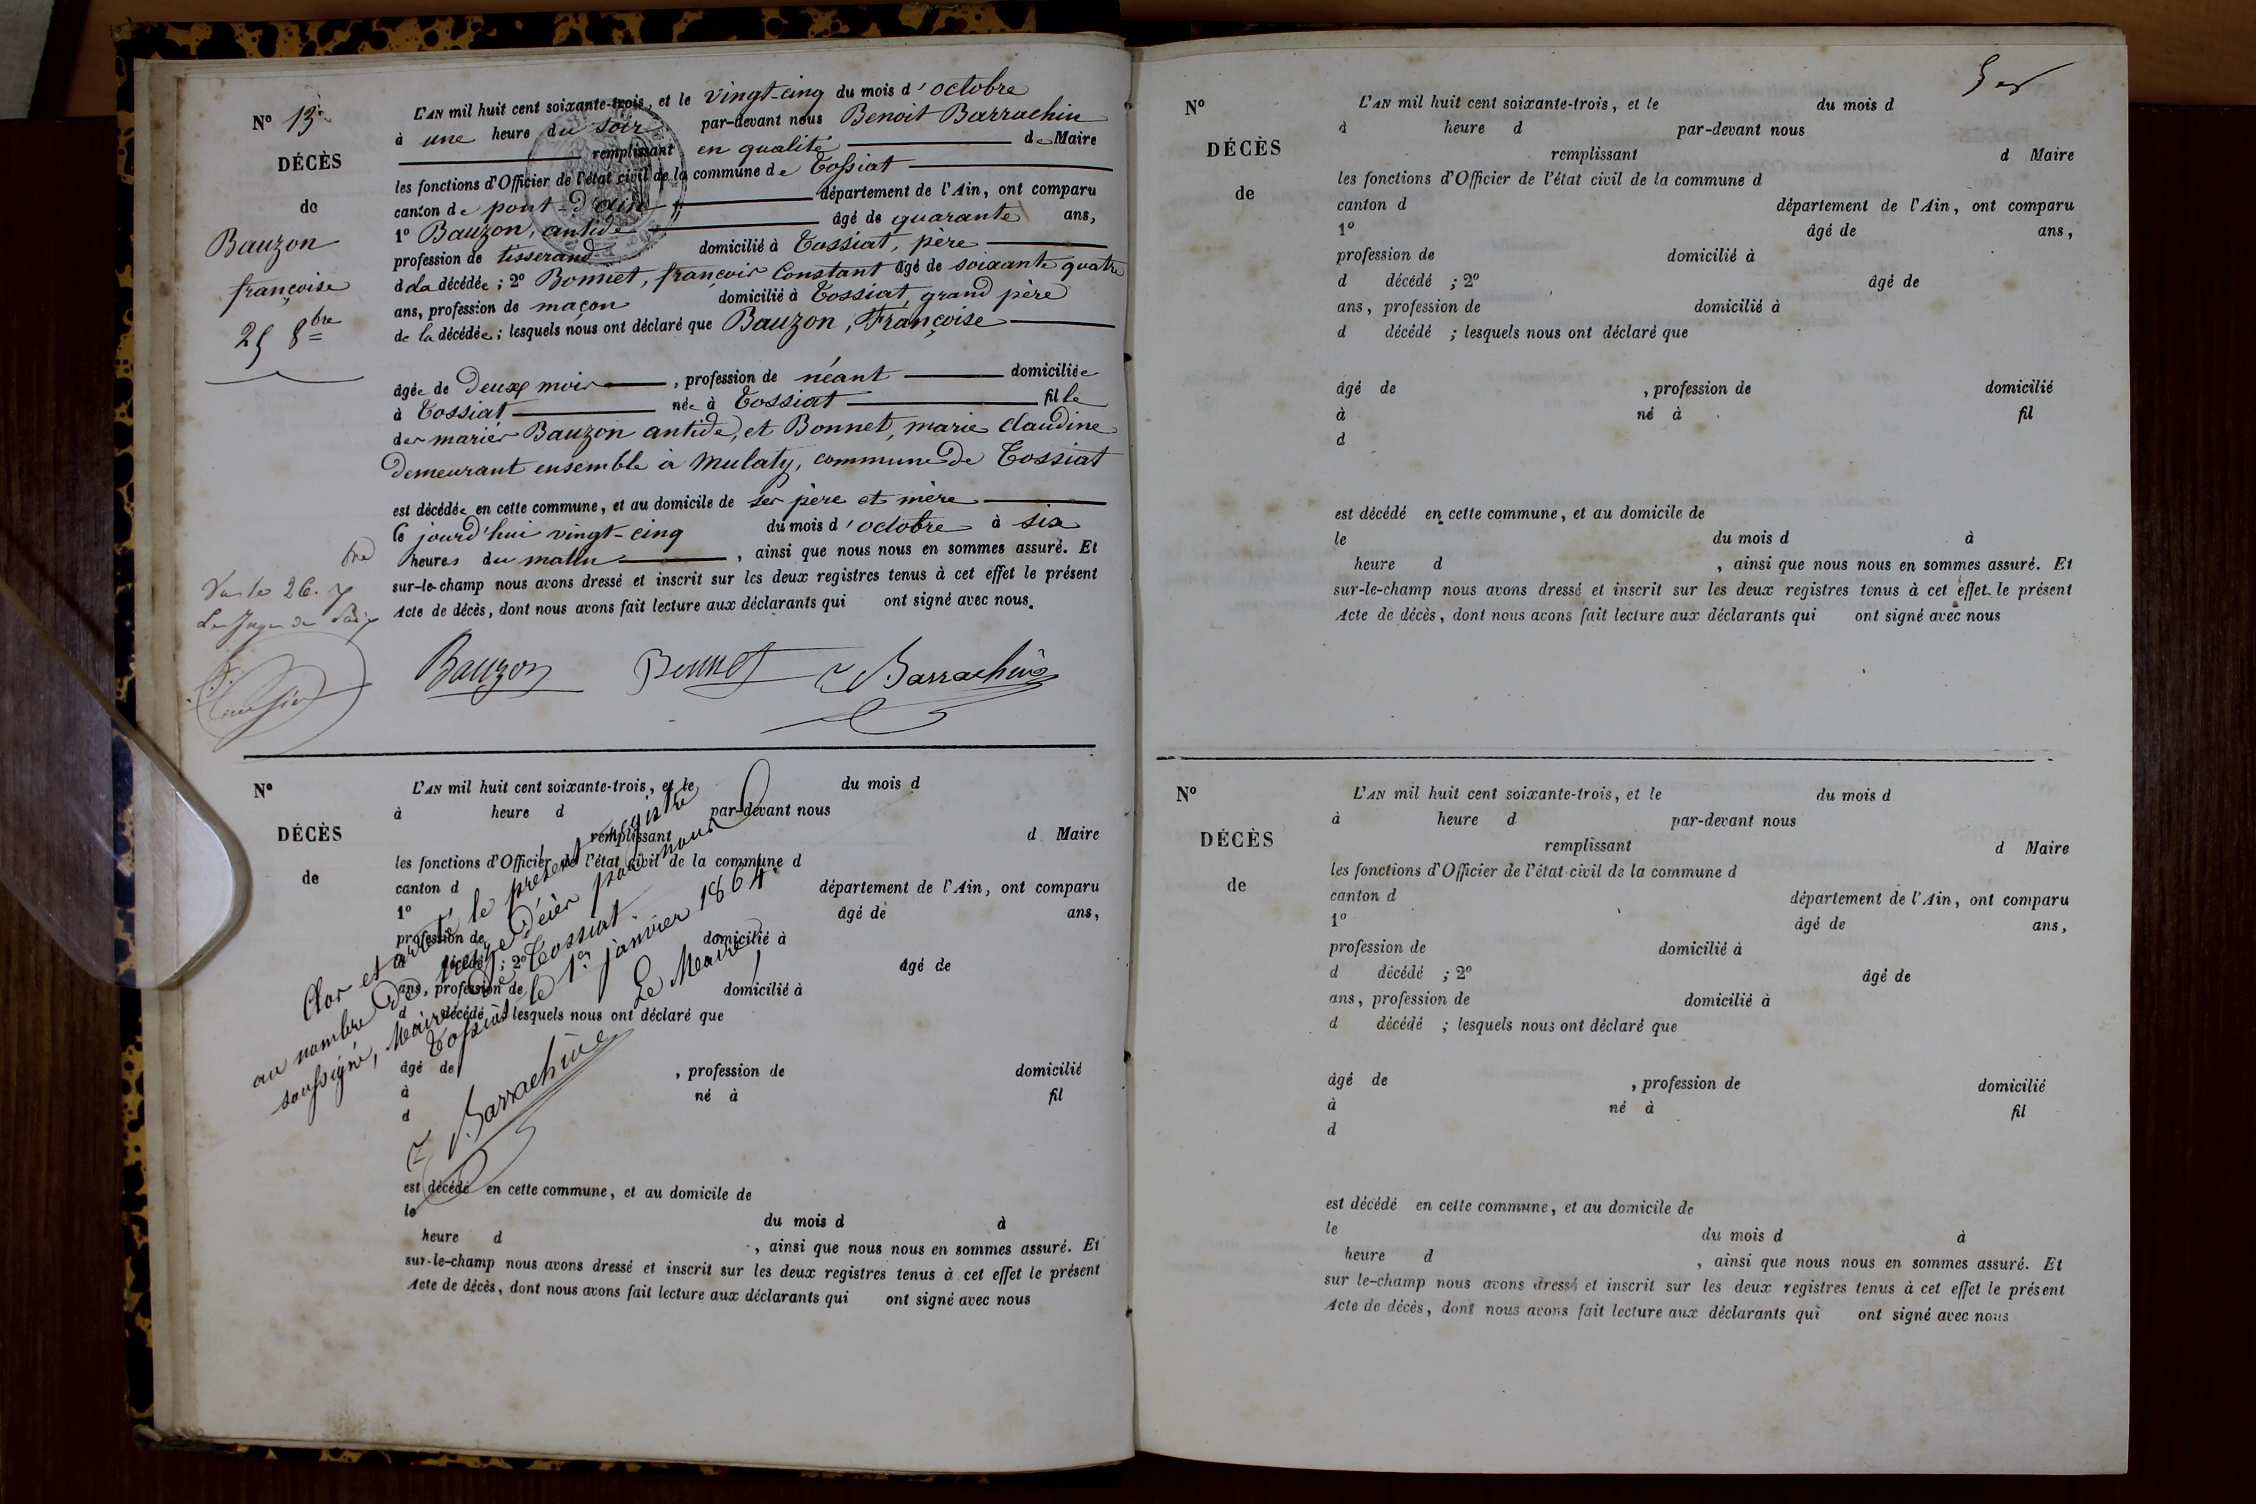 N° 13.
DÉCÈS
de
Bauzon
françoise
25 8bre
L'AN mil huit cent soixante-trois, et le vingt-cinq du mois d'octobre
à une heure du soir par-devant nous Benoit Barrachin
remplissant en qualité de Maire
les fonctions d'Officier de l'état civil de la commune de Tossiat
canton de pont-d'ain département de l'Ain, ont comparu
1° Bauzon, antide âgé de quarante ans,
profession de tisserand domicilié à Tossiat, père
d la décédée; 2° Bonnet, françois Constant âgé de soixante quatre
ans, profession de maçon domicilié à Tossiat, grand père
de la décédée; lesquels nous ont déclaré que Bauzon, Françoise
âgée de deux mois, profession de néant domiciliée
à Tossiat née à Tossiat fille
des mariés Bauzon antide, et Bonnet, marie Claudine
demeurant ensemble à Mulaty, commune de Tossiat
est décédée en cette commune, et au domicile de ses père et mère
le jourd'hui vingt-cinq du mois d'octobre à six
heures du matin, ainsi que nous nous en sommes assuré. Et
sur-le-champ nous avons dressé et inscrit sur les deux registres tenus à cet effet le présent
Acte de décès, dont nous avons fait lecture aux déclarants qui ont signé avec nous.
Vu le 26.
Le Juge de Paix
Bauzon Bonnet Barrachin
N°
DÉCÈS
de
L'AN mil huit cent soixante-trois, et le du mois d
à heure d par-devant nous
remplissant d Maire
les fonctions d'Officier de l'état civil de la commune d
canton d département de l'Ain, ont comparu
1° âgé de ans,
profession de domicilié à
d décédé ; 2° âgé de
ans, profession de domicilié à
d décédé ; lesquels nous ont déclaré que
âgé de , profession de domicilié
à né à fil
d
est décédé en cette commune, et au domicile de
le du mois d à
heure d , ainsi que nous nous en sommes assuré. Et
sur-le-champ nous avons dressé et inscrit sur les deux registres tenus à cet effet le présent
Acte de décès, dont nous avons fait lecture aux déclarants qui ont signé avec nous
Clos et arrêté le présent registre
au nombre de treize décès par nous
soussigné, Maire de Tossiat.
Tossiat le 1er janvier 1864.
Le Maire
Barrachin
N°
DÉCÈS
de
L'AN mil huit cent soixante-trois, et le du mois d
à heure d par-devant nous
remplissant d Maire
les fonctions d'Officier de l'état civil de la commune d
canton d département de l'Ain, ont comparu
1° âgé de ans,
profession de domicilié à
d décédé ; 2° âgé de
ans, profession de domicilié à
d décédé ; lesquels nous ont déclaré que
âgé de , profession de domicilié
à né à fil
d
est décédé en cette commune, et au domicile de
le du mois d à
heure d , ainsi que nous nous en sommes assuré. Et
sur-le-champ nous avons dressé et inscrit sur les deux registres tenus à cet effet le présent
Acte de décès, dont nous avons fait lecture aux déclarants qui ont signé avec nous
N°
DÉCÈS
de
L'AN mil huit cent soixante-trois, et le du mois d
à heure d par-devant nous
remplissant d Maire
les fonctions d'Officier de l'état civil de la commune d
canton d département de l'Ain, ont comparu
1° âgé de ans,
profession de domicilié à
d décédé ; 2° âgé de
ans, profession de domicilié à
d décédé ; lesquels nous ont déclaré que
âgé de , profession de domicilié
à né à fil
d
est décédé en cette commune, et au domicile de
le du mois d à
heure d , ainsi que nous nous en sommes assuré. Et
sur le-champ nous avons dressé et inscrit sur les deux registres tenus à cet effet le présent
Acte de décès, dont nous avons fait lecture aux déclarants qui ont signé avec nous